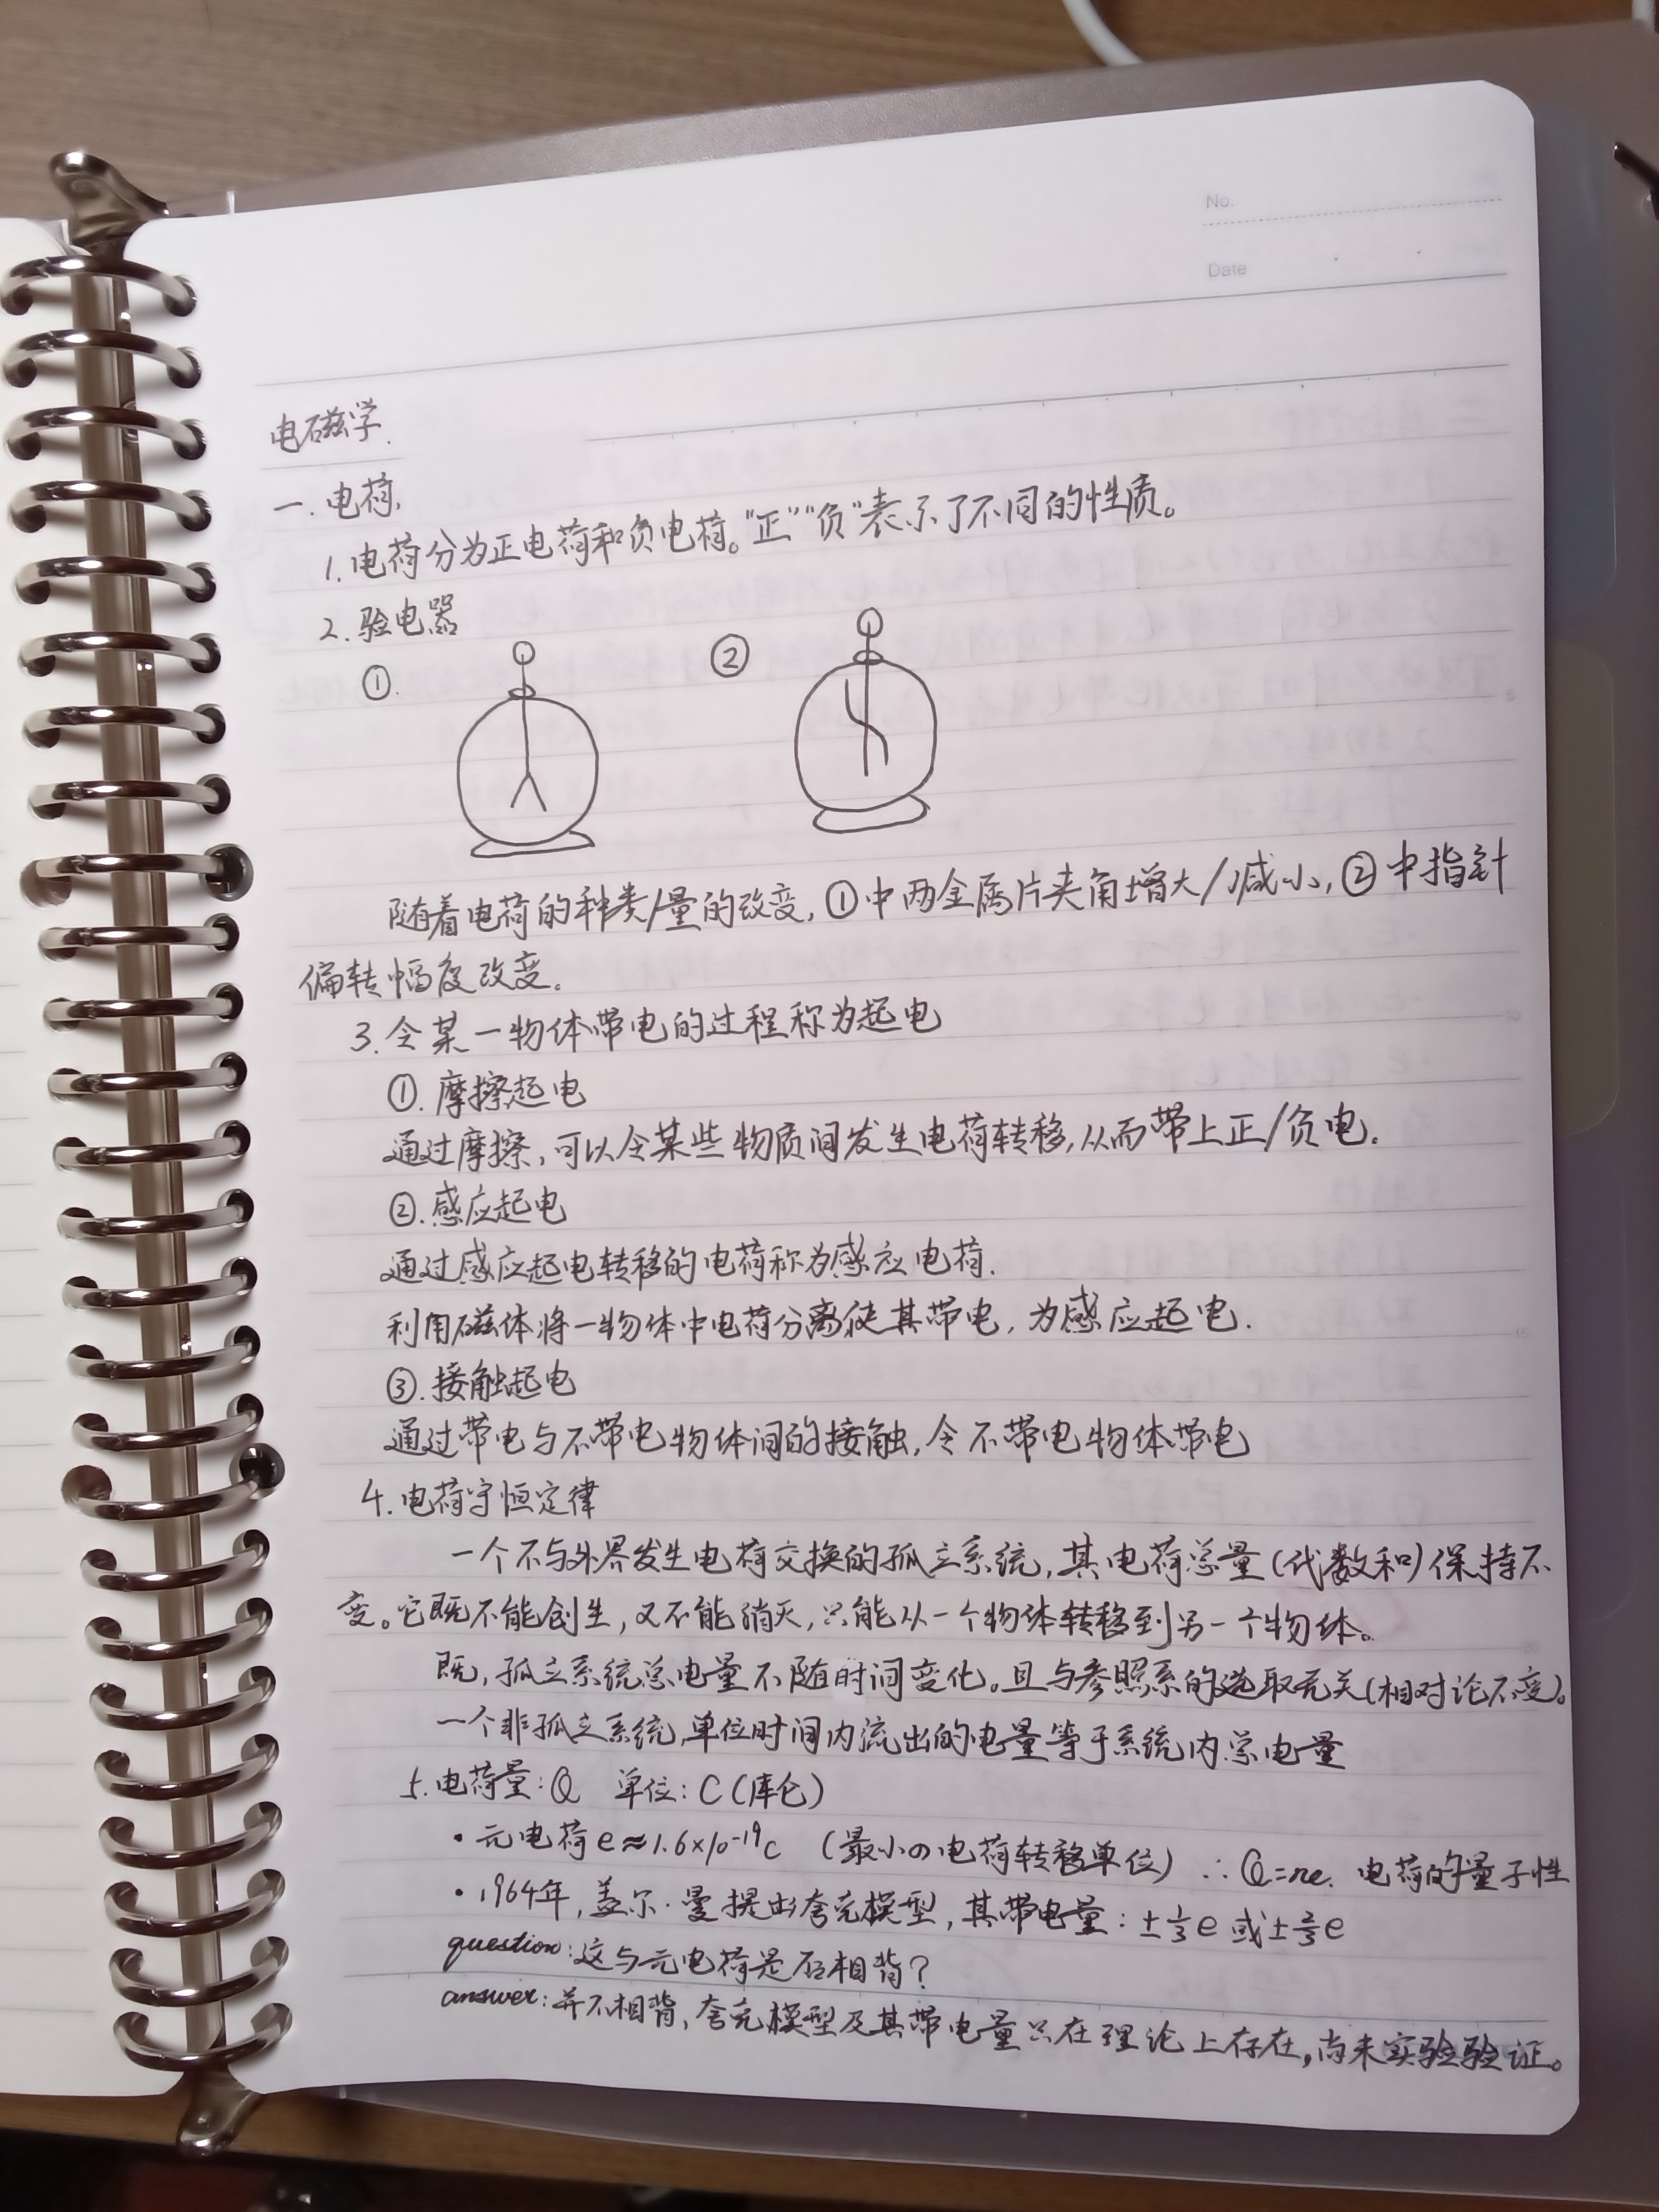 No.
Date
电磁学.
一. 电荷,
1. 电荷分为正电荷和负电荷。"正""负"表示了不同的性质。
2. 验电器
①. ②
随着电荷的种类/量的改变, ①中两金属片夹角增大/减小, ②中指针
偏转幅度改变.
3. 令某一物体带电的过程称为起电
①. 摩擦起电
通过摩擦, 可以令某些物质间发生电荷转移, 从而带上正/负电.
②. 感应起电
通过感应起电转移的电荷称为感应电荷.
利用磁体将一物体中电荷分离使其带电, 为感应起电.
③. 接触起电
通过带电与不带电物体间的接触, 令不带电物体带电
4. 电荷守恒定律
一个不与外界发生电荷交换的孤立系统, 其电荷总量(代数和)保持不
变。它既不能创生, 又不能消灭, 只能从一个物体转移到另一个物体。
既, 孤立系统总电量不随时间变化。且与参照系的选取无关(相对论不变)。
一个非孤立系统, 单位时间内流出的电量等于系统内总电量
5. 电荷量: Q 单位: C (库仑)
• 元电荷 e≈1.6×10⁻¹⁹C (最小の电荷转移单位) ∴ Q=ne. 电荷的量子性
• 1964年, 盖尔·曼提出夸克模型, 其带电量: ±⅓e 或 ±⅔e
question: 这与元电荷是否相背?
answer: 并不相背, 夸克模型及其带电量只在理论上存在, 尚未实验验证。